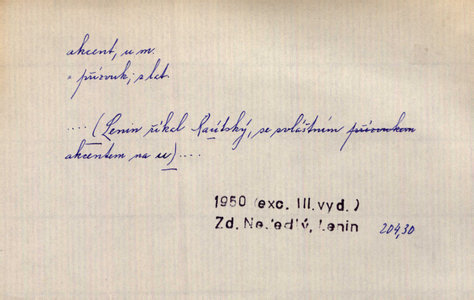 akcent, u m.
= přízvuk; slet
.... (Lenin říkal Kaútský, se zvláštním přízvukem
akcentem na u)....
1950 (exc. III. vyd.)
Zd. Nejedlý, Lenin 204,30